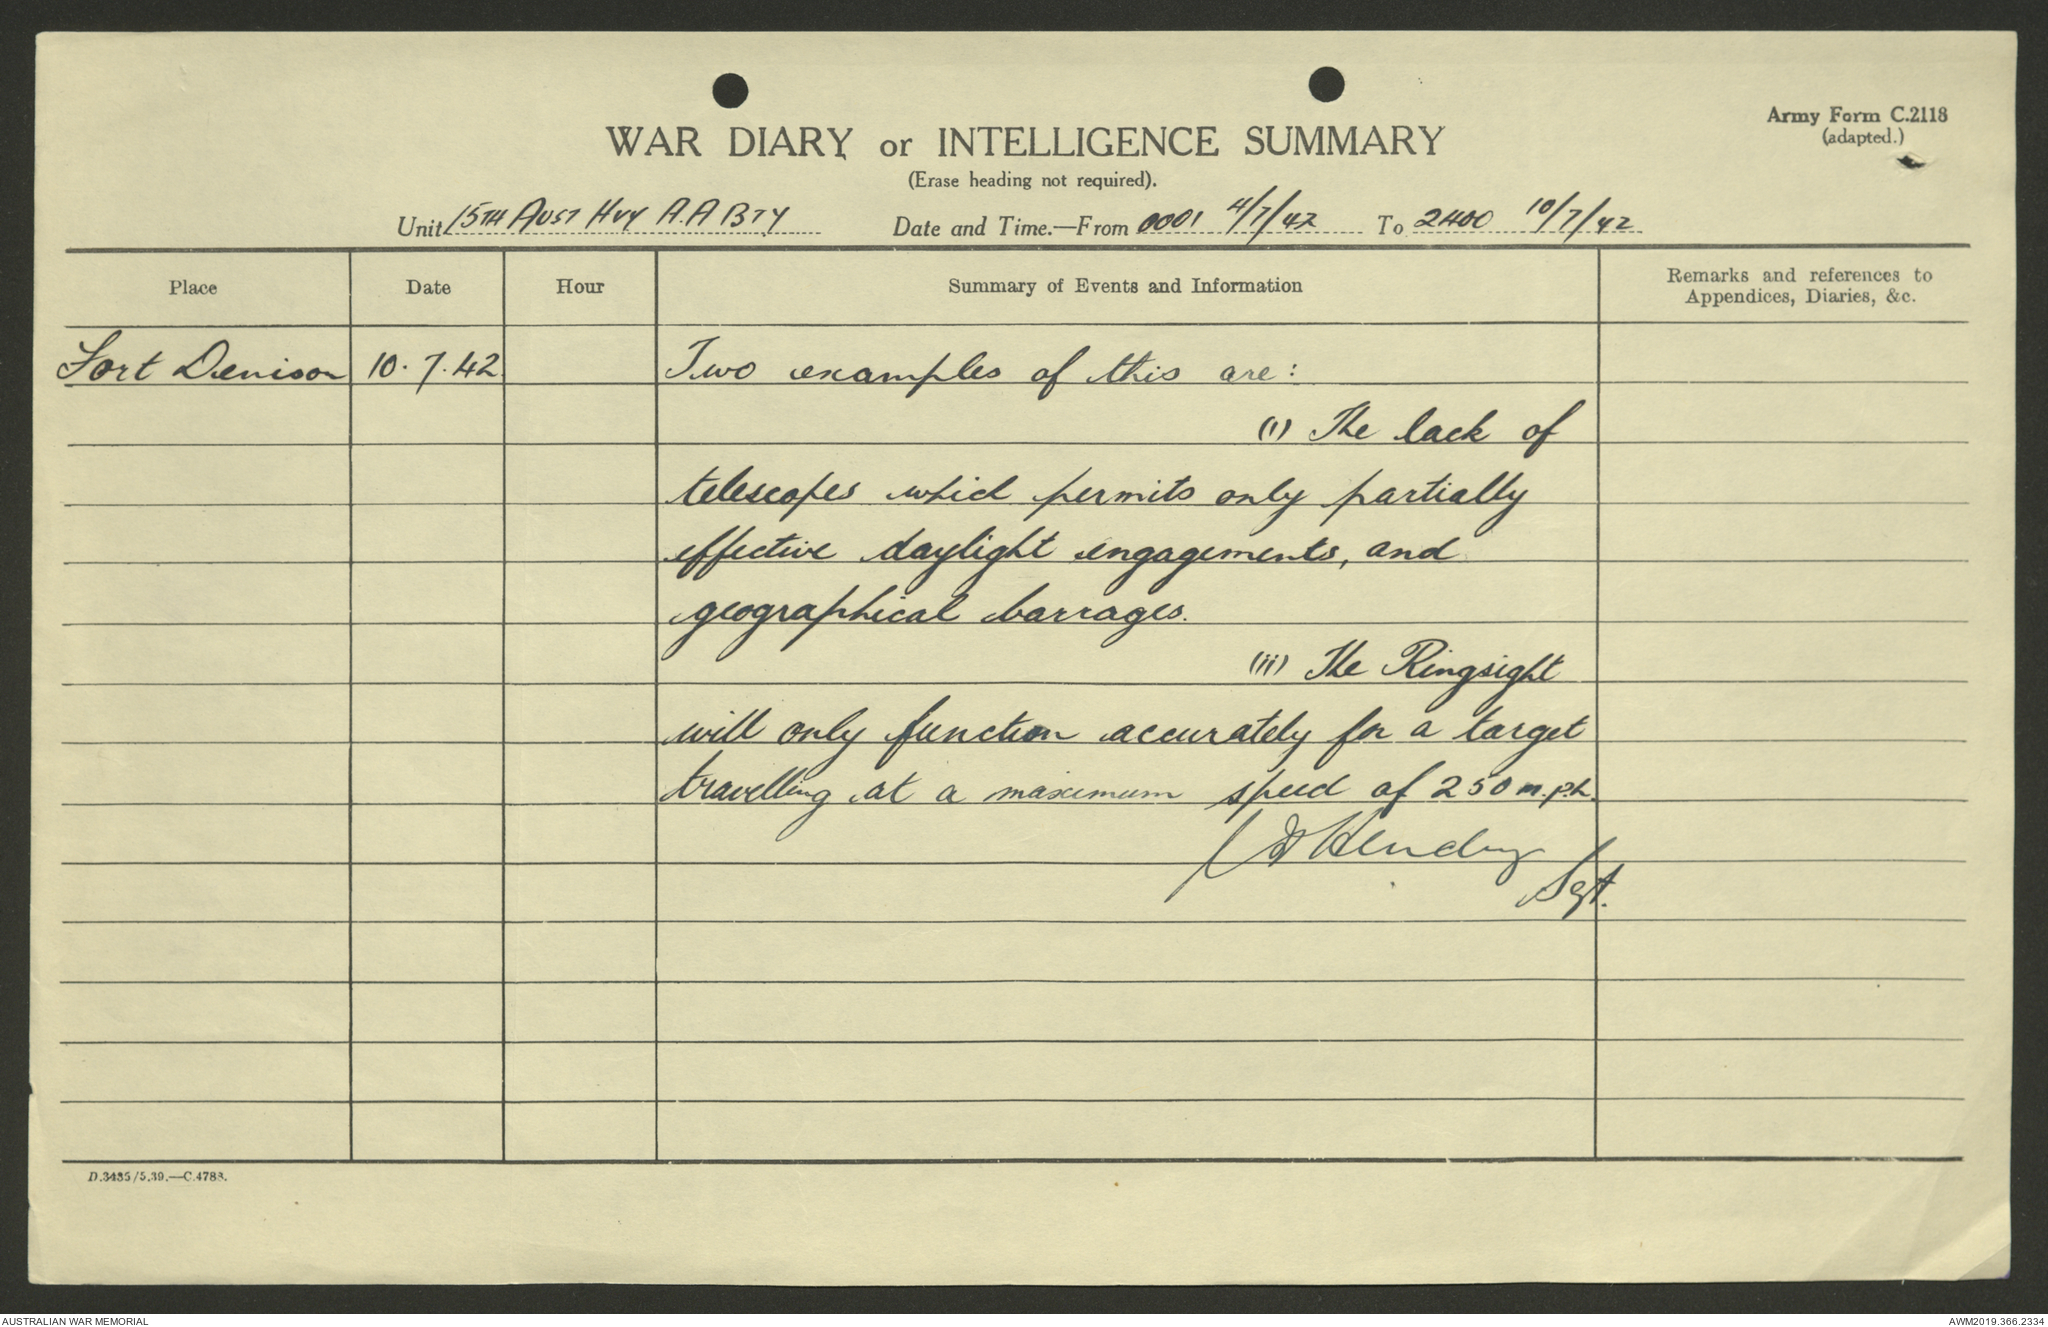 Army Form C.2118
(adapted.)
WAR DIARY or INTELLIGENCE SUMMARY
(Erase heading not required).
Unit 15TH AUST HVY A.A BTY Date and Time.—From 0001 4/7/42 To 2400 10/7/42
Place Date Hour Summary of Events and Information Remarks and references to
Appendices, Diaries, &c.
Fort Denison 10.7.42 Two examples of this are:
(i) The lack of
telescopes which permits only partially
effective daylight engagements, and
geographical barrages.
(ii) The Ringsight
will only function accurately for a target
travelling at a maximum speed of 250 m.p.h.
Hendry
Sgt.
D.3435/5.39.—C.4788.
AUSTRALIAN WAR MEMORIAL
AWM2019.366.2334